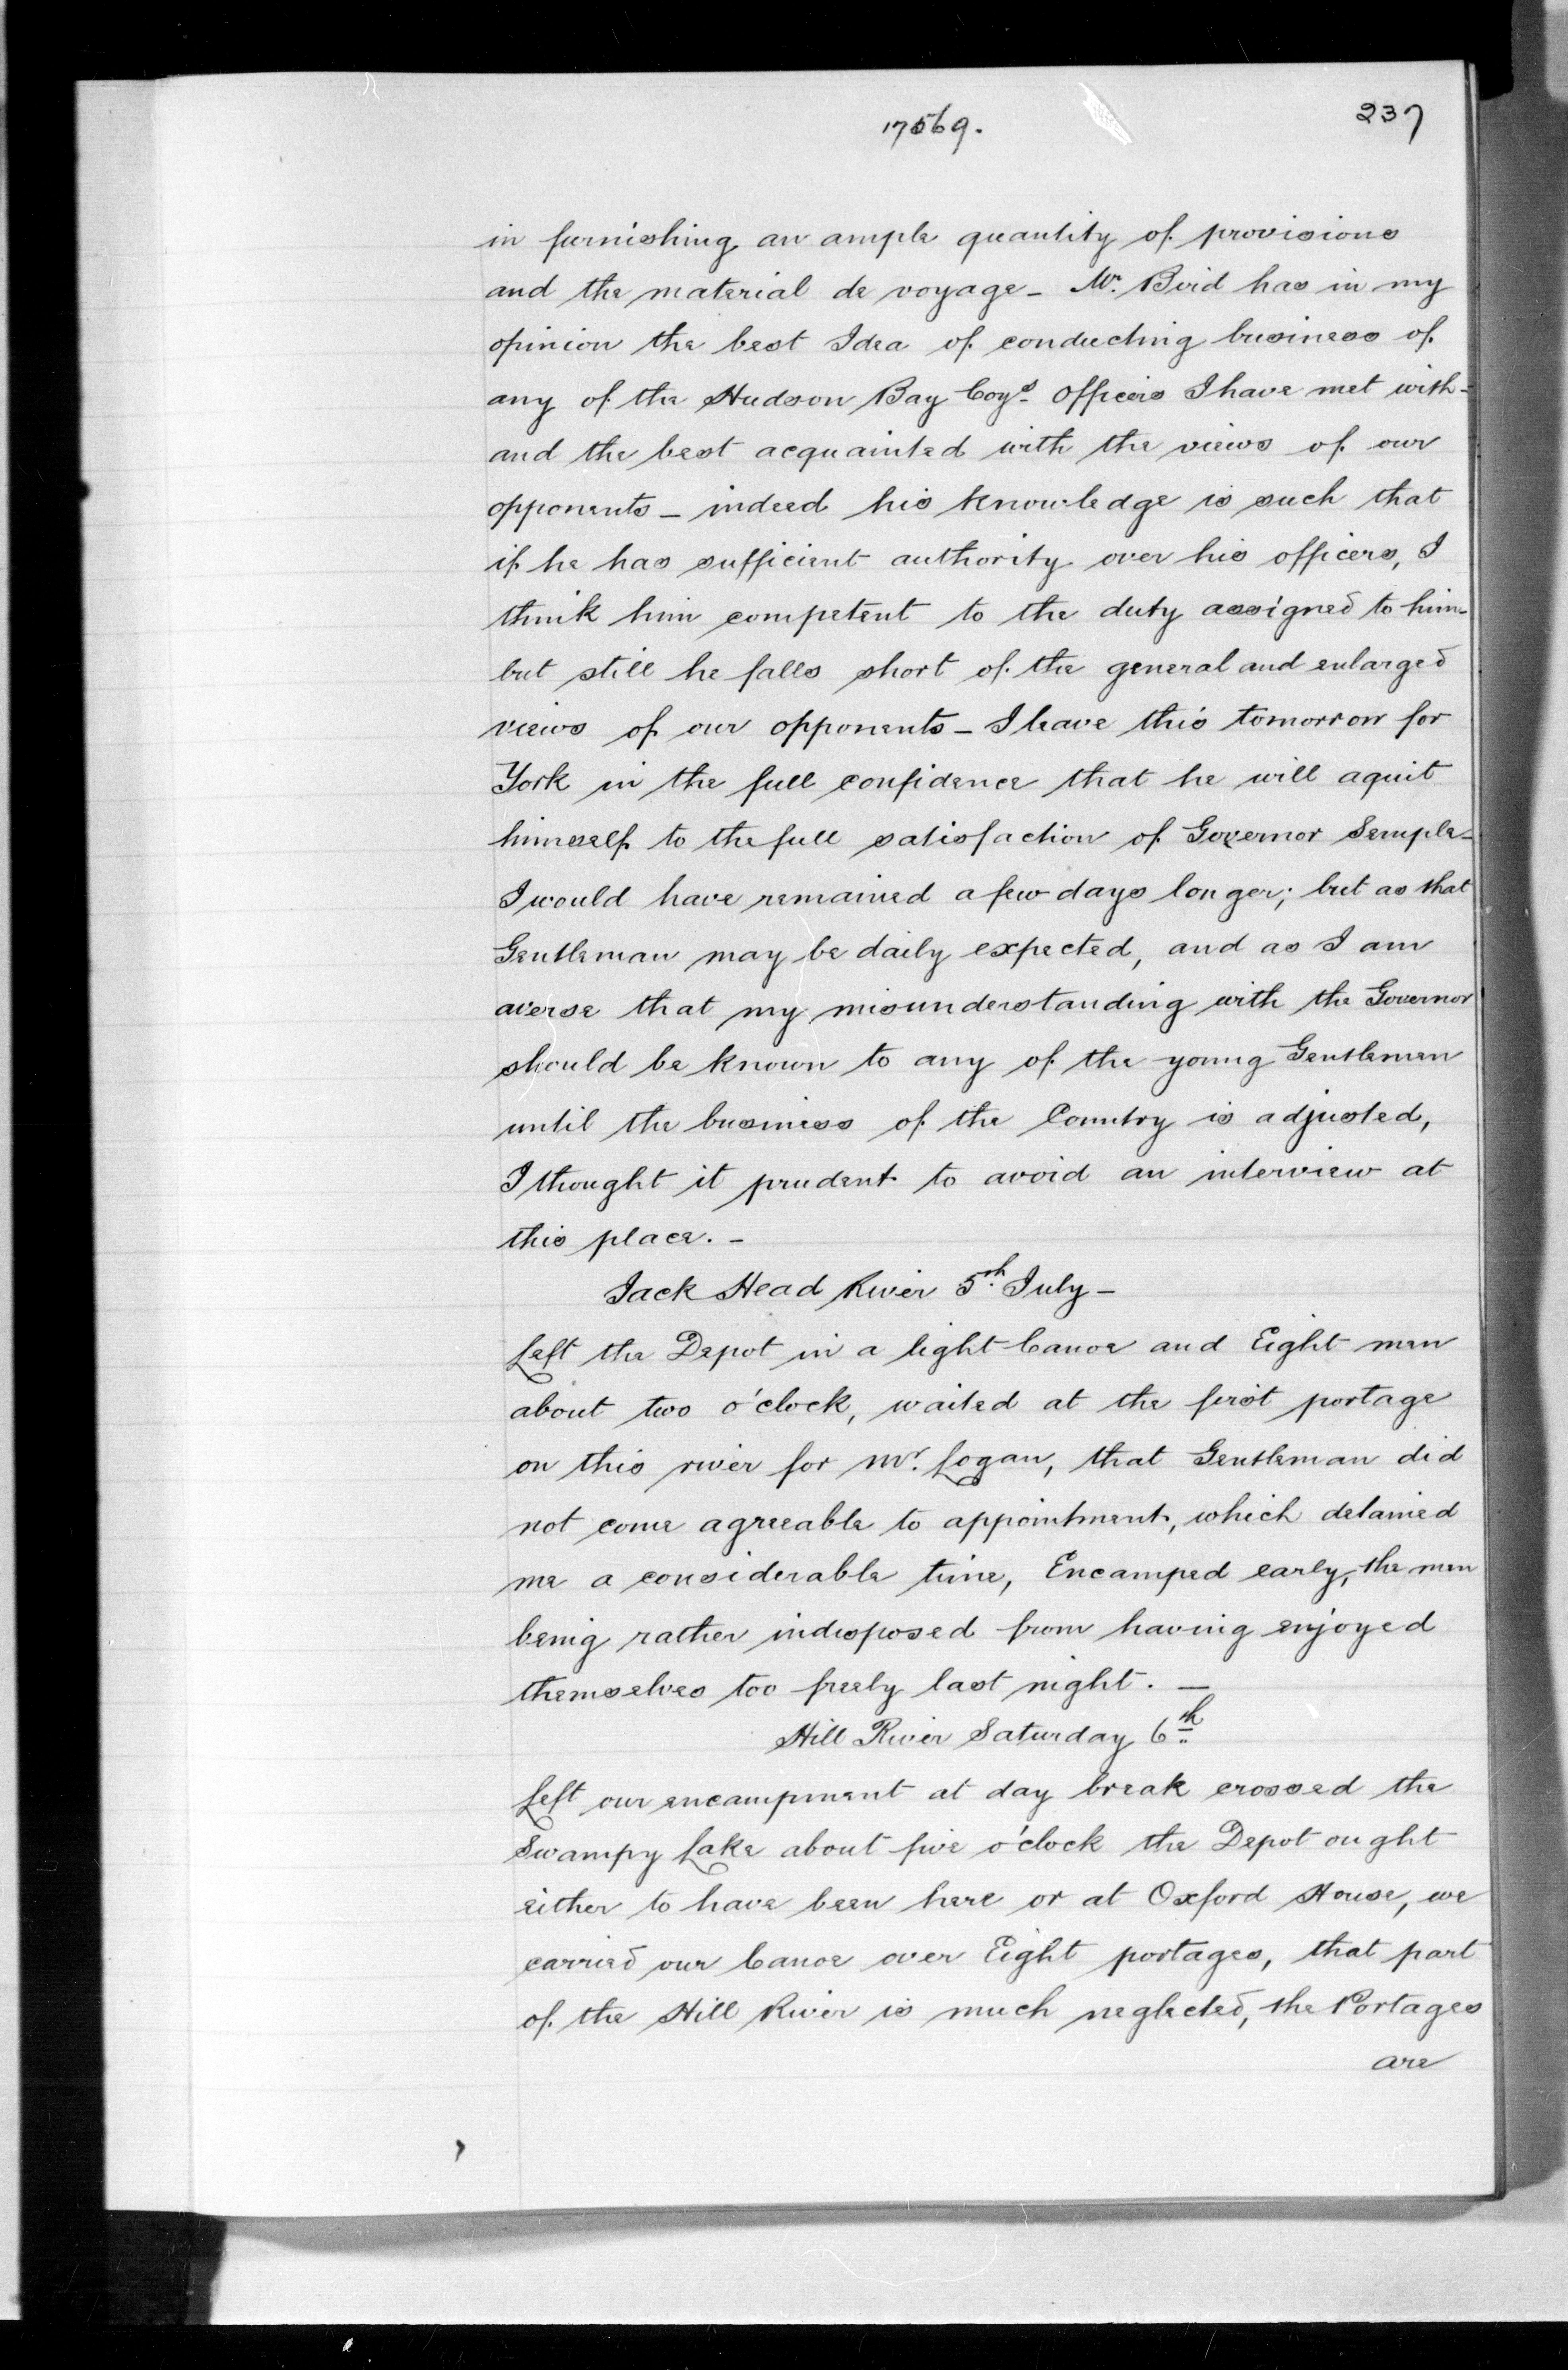 17569.
237
in furnishing an ample quantity of provisions
and the material de voyage - Mr. Bird has in my
opinion the best Idea of conducting business of
any of the Hudson Bay Coys. Officers I have met with -
and the best acquainted with the views of our
opponents - indeed his knowledge is such that
if he has sufficient authority over his officers, I
think him competent to the duty assigned to him -
but still he falls short of the general and enlarged
views of our opponents - I leave this tomorrow for
York in the full confidence that he will aquit
himself to the full satisfaction of Governor Semple -
I would have remained a few days longer; but as that
Gentleman may be daily expected, and as I am
averse that my misunderstanding with the Governor
should be known to any of the young Gentlemen
until the business of the Country is adjusted,
I thought it prudent to avoid an interview at
this place. -
Jack Head River 5th July -
Left the Depot in a light Canoe and Eight men
about two o'clock, waited at the first portage
on this river for Mr. Logan, that Gentleman did
not come agreeable to appointment, which detained
me a considerable time, Encamped early, the men
being rather indisposed from having enjoyed
themselves too freely last night. -
Hill River Saturday 6th
Left our encampment at day break crossed the
Swampy Lake about five o'clock the Depot ought
either to have been here or at Oxford House, we
carried our Canoe over Eight portages, that part
of the Hill River is much neglected, the Portages
are